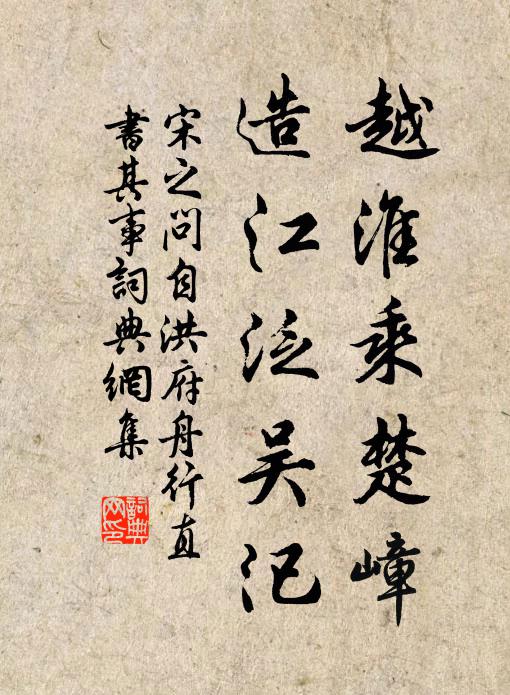 越淮乘楚嶂
造江泛吴汜
宋之问自洪府舟行直
書其事詞典網集
詞典网印